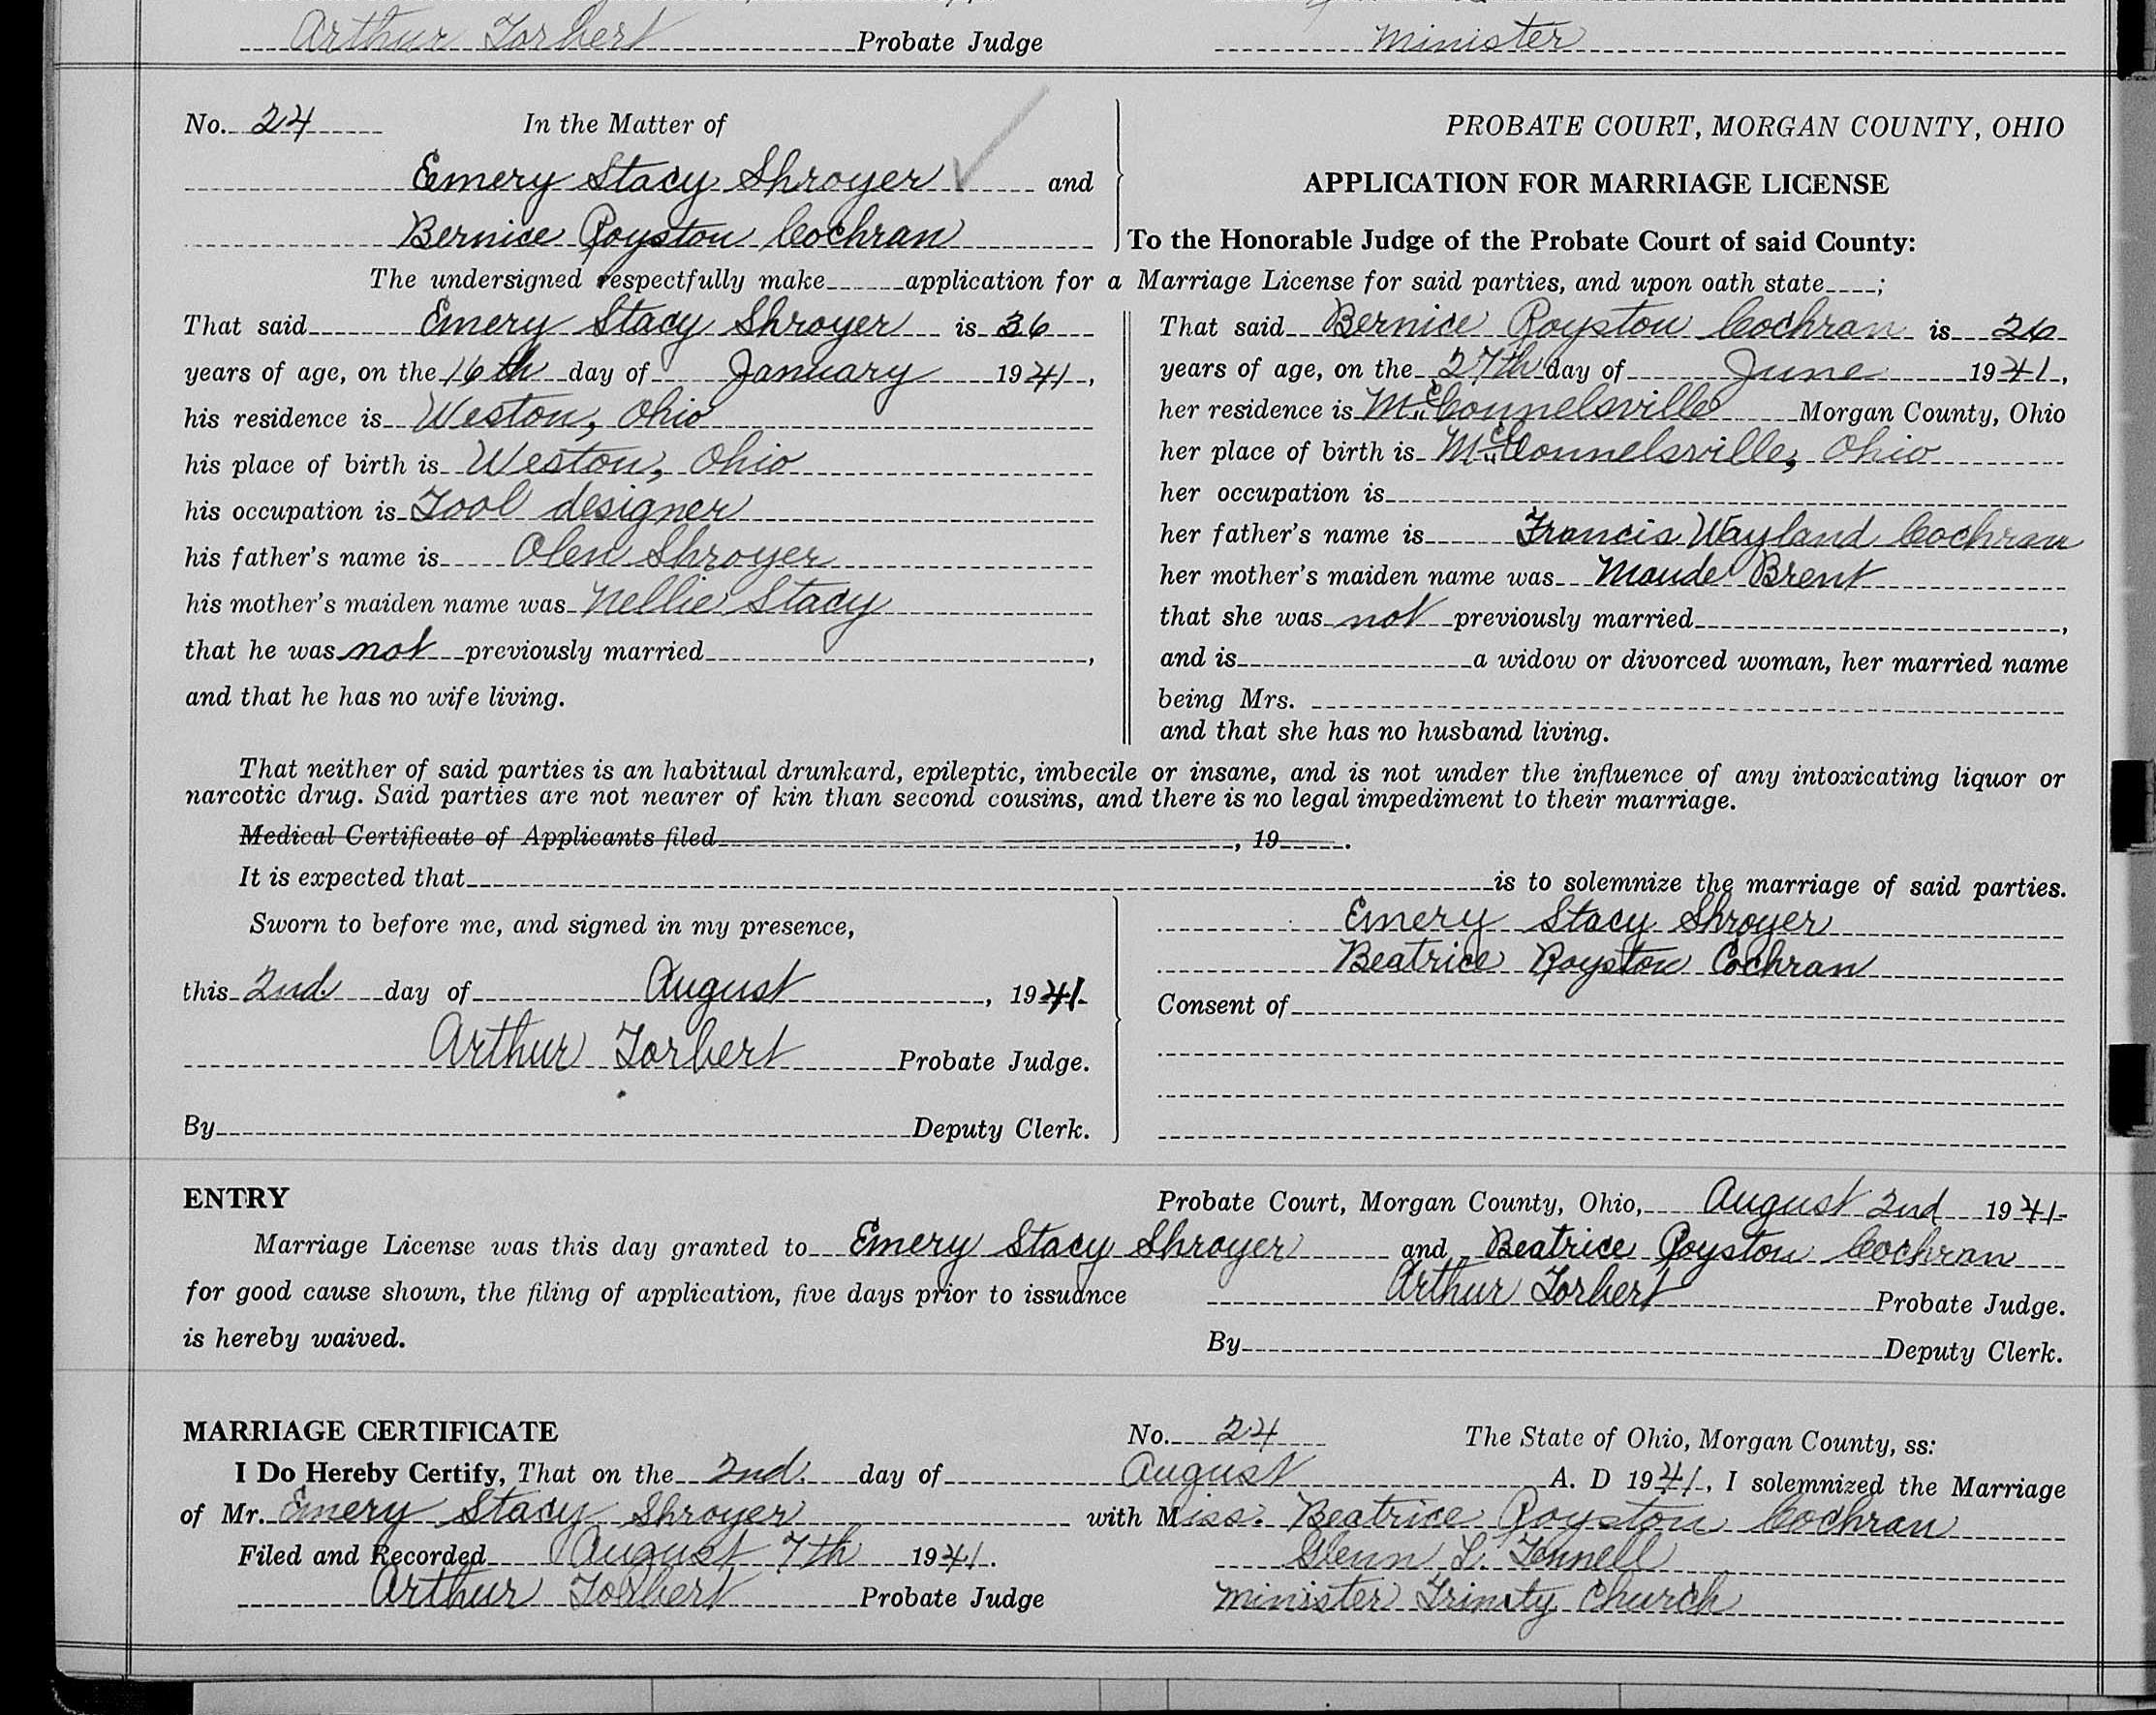 Arthur Torbert Probate Judge Minister
No. 24 In the Matter of PROBATE COURT, MORGAN COUNTY, OHIO
Emery Stacy Shroyer and APPLICATION FOR MARRIAGE LICENSE
Bernice Royston Cochran To the Honorable Judge of the Probate Court of said County:
The undersigned respectfully make application for a Marriage License for said parties, and upon oath state ;
That said Emery Stacy Shroyer is 36
years of age, on the 16th day of January 1941,
his residence is Weston, Ohio
his place of birth is Weston, Ohio
his occupation is Tool designer
his father's name is Olen Shroyer
his mother's maiden name was Nellie Stacy
that he was not previously married ,
and that he has no wife living.
That said Bernice Royston Cochran is 26
years of age, on the 27th day of June 1941,
her residence is McConnelsville Morgan County, Ohio
her place of birth is McConnelsville, Ohio
her occupation is
her father's name is Francis Wayland Cochran
her mother's maiden name was Maude Brent
that she was not previously married ,
and is a widow or divorced woman, her married name
being Mrs.
and that she has no husband living.
That neither of said parties is an habitual drunkard, epileptic, imbecile or insane, and is not under the influence of any intoxicating liquor or
narcotic drug. Said parties are not nearer of kin than second cousins, and there is no legal impediment to their marriage.
Medical Certificate of Applicants filed , 19 .
It is expected that is to solemnize the marriage of said parties.
Sworn to before me, and signed in my presence,
this 2nd day of August , 1941
Arthur Torbert Probate Judge.
By Deputy Clerk.
Emery Stacy Shroyer
Beatrice Royston Cochran
Consent of
ENTRY Probate Court, Morgan County, Ohio, August 2nd 1941
Marriage License was this day granted to Emery Stacy Shroyer and Beatrice Royston Cochran
for good cause shown, the filing of application, five days prior to issuance Arthur Torbert Probate Judge.
is hereby waived. By Deputy Clerk.
MARRIAGE CERTIFICATE No. 24 The State of Ohio, Morgan County, ss:
I Do Hereby Certify, That on the 2nd. day of August A. D 1941, I solemnized the Marriage
of Mr. Emery Stacy Shroyer with Miss. Beatrice Royston Cochran
Filed and Recorded August 7th 1941. Glenn L.
Arthur Torbert Probate Judge Minister Trinity Church